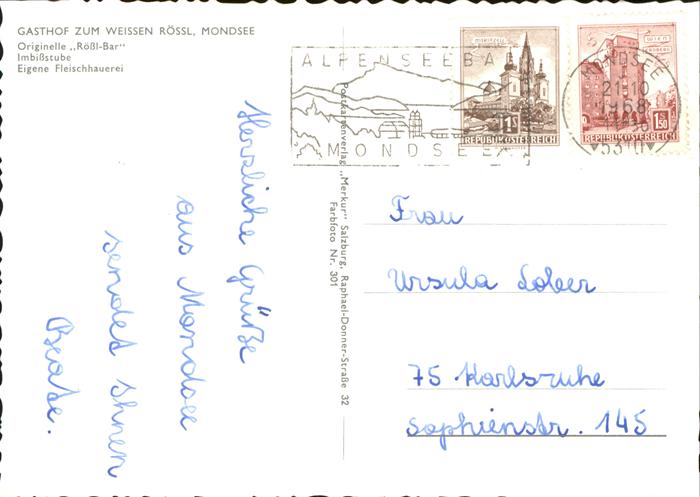 GASTHOF ZUM WEISSEN RÖSSL, MONDSEE
Originelle „Rößl-Bar"
Imbißstube
Eigene Fleischhauerei
Herzliche Grüße
aus Mondsee
sendet Ihnen
Beate.
Postkartenverlag „Merkur" Salzburg, Raphael-Donner-Straße 32
Farbfoto Nr. 301
ALPENSEEBA
MONDSEE
MARIAZELL
1S
REPUBLIK ÖSTERREICH
WIEN
HEIDERG
1.50
REPUBLIK ÖSTERREICH
MONDSEE
21.10
68
5310
Frau
Ursula Lober
75 Karlsruhe
Sophienstr. 145